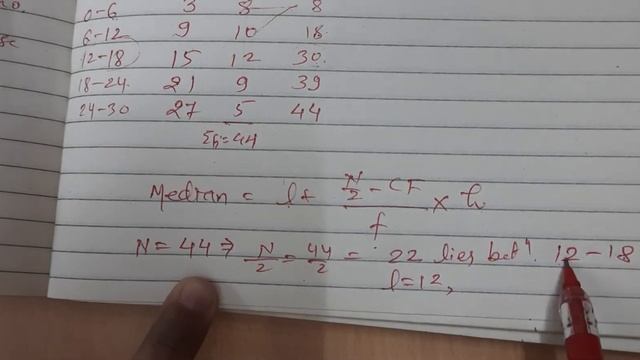 0-6 3 8 8
6-12 9 10 18
12-18 15 12 30
18-24 21 9 39
24-30 27 5 44
Σfi=44
Median = l + (N/2 - CF)/f × h
N=44 ⇒ N/2 = 44/2 = 22 lies betn. 12-18
l=12,